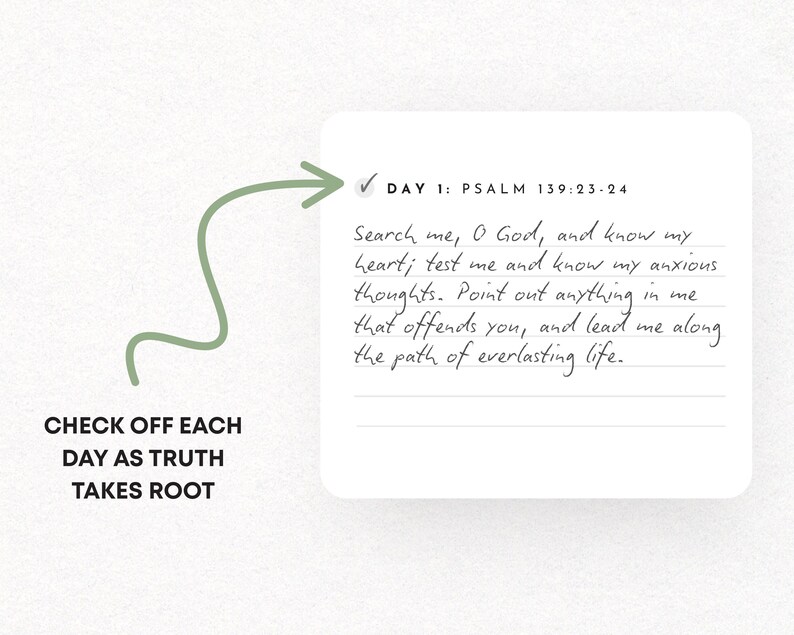 ✓ DAY 1: PSALM 139:23-24
Search me, O God, and know my
heart; test me and know my anxious
thoughts. Point out anything in me
that offends you, and lead me along
the path of everlasting life.
CHECK OFF EACH
DAY AS TRUTH
TAKES ROOT